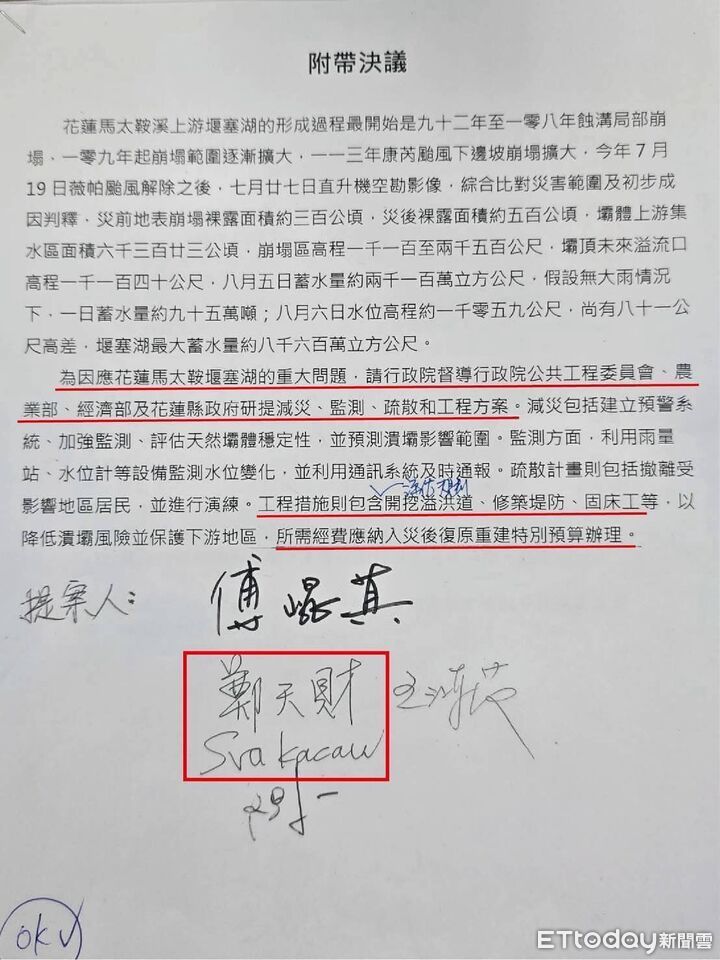 附帶決議
花蓮馬太鞍溪上游堰塞湖的形成過程最開始是九十二年至一零八年蝕溝局部崩
塌、一零九年起崩塌範圍逐漸擴大，一一三年康芮颱風下邊坡崩塌擴大，今年7月
19日薇帕颱風解除之後，七月廿七日直升機空勘影像，綜合比對災害範圍及初步成
因判釋、災前地表崩塌裸露面積約三百公頃，災後裸露面積約五百公頃，壩體上游集
水區面積六千三百廿三公頃，崩塌區高程一千一百至兩千五百公尺，壩頂未來溢流口
高程一千一百四十公尺，八月五日蓄水量約兩千一百萬立方公尺，假設無大雨情況
下，一日蓄水量約九十五萬噸；八月六日水位高程約一千零五九公尺，尚有八十一公
尺高差，堰塞湖最大蓄水量約八千六百萬立方公尺。
為因應花蓮馬太鞍堰塞湖的重大問題，請行政院督導行政院公共工程委員會、農
業部、經濟部及花蓮縣政府研提減災、監測、疏散和工程方案。減災包括建立預警系
統、加強監測、評估天然壩體穩定性，並預測潰壩影響範圍。監測方面，利用雨量
站、水位計等設備監測水位變化，並利用通訊系統及時通報。疏散計畫則包括撤離受
影響地區居民，並進行演練。工程措施則包含開挖溢洪道、修築堤防、固床工等，以
降低潰壩風險並保護下游地區，所需經費應納入災後復原重建特別預算辦理。
提案人：
傅崐萁
鄭天財
Sra Kacaw
OK
ETtoday新聞雲